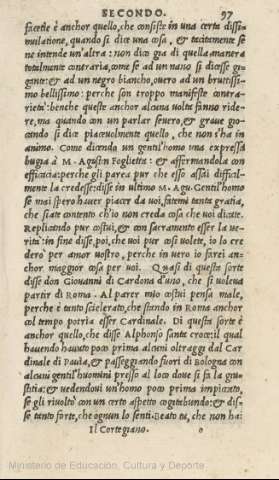 SECONDO. 97
facetie è anchor quello, che consiste in una certa dissi-
mulatione, quando si dice una cosa, & tacitamente se
ne intende un'altra: non dico già di quella manera
totalmente contraria, come se ad un nano si dicesse gi-
gante: & ad un negro biancho, overo ad un bruttissi-
mo bellissimo: perche son troppo manifeste contra-
rietà: benche queste anchor alcuna volta fanno ride-
re, ma quando con un parlar severo, & grave gio-
cando si dice piacevolmente quello, che non s'ha in
animo. Come dicendo un gentil'homo una expressa
bugia à M. Agustin Foglietta: & affermandola con
efficacia: perche gli parea pur che esso assai difficil-
mente la credesse: disse in ultimo M. Agu. Gentil'homo
se mai spero haver piacer da voi, fatemi tanta gratia,
che siate contento ch'io non creda cosa che voi dicate.
Replicando pur costui, & con sacramento esser la ve-
rità: in fine disse, poi, che voi pur così volete, io lo cre-
derò per amor vostro, perche in vero io farei an-
chor maggior cosa per voi. Quasi di questa sorte
disse don Giovanni di Cardona d'uno, che si voleva
partir di Roma. Al parer mio costui pensa male,
perche è tanto scielerato, che stando in Roma anchor
col tempo potria esser Cardinale. Di questa sorte è
anchor quello, che disse Alphonso santa croce: il qual
havendo havuto poco prima alcuni oltraggi dal Car
dinale di Pavia, & passeggiando fuori di Bologna con
alcuni gentil'huomini presso al loco dove si fa la giu-
stitia: & vedendovi un'homo poco prima impicato,
se gli rivoltò con un certo aspetto cogitabundo: & dis-
se tanto forte, che ognun lo sentì. Beato tu, che non hai
Il Cortegiano. o
Ministerio de Educación, Cultura y Deporte